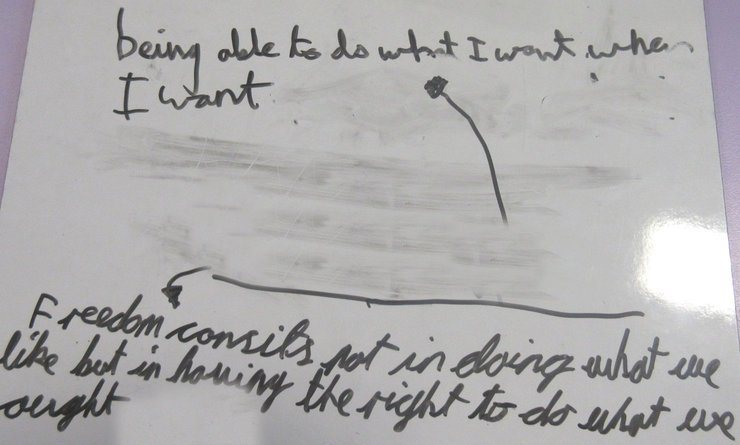 being able to do what I want when
I want
Freedom consits not in doing what we
like but in having the right to do what we
ought